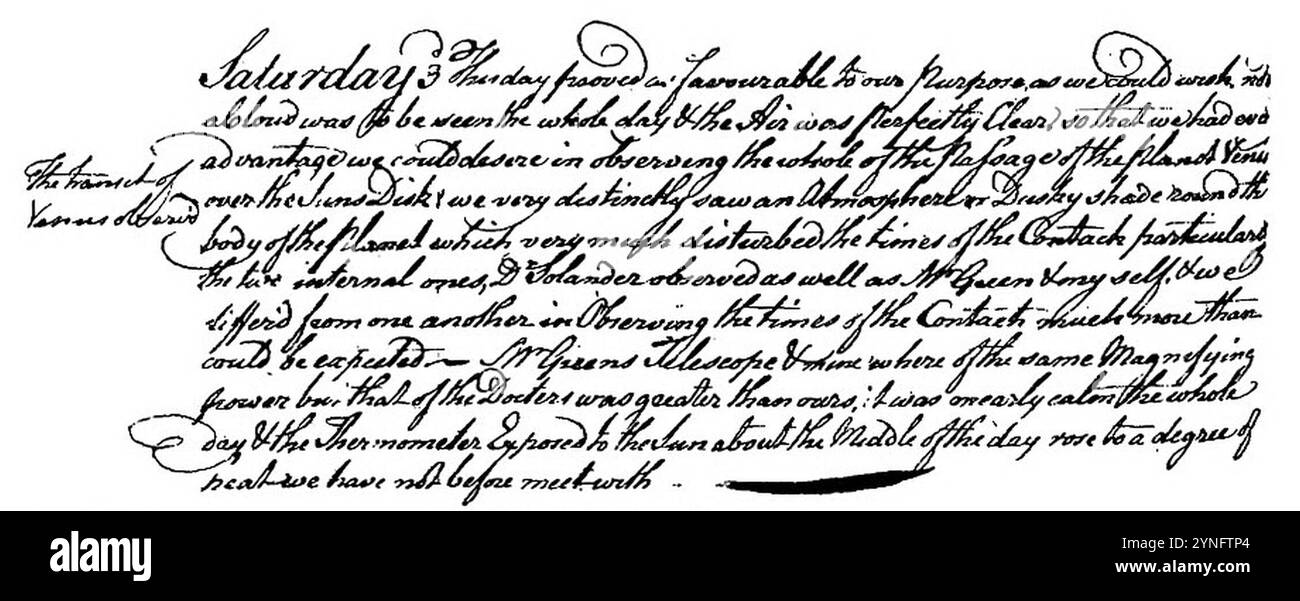 Saturday 3d This day proved as favourable to our Purpose as we could wish, not
a Cloud was to be seen the whole day & the Air was Perfectly Clear, so that we had
advantage we could desire in observing the whole of the Passage of the Planet Venus
The transit of
Venus observ'd
over the Suns Disk: we very distinctly saw an Atmosphere or Dusky shade round the
body of the Planet which very much disturbed the times of the Contacts particularly
the two internal ones, Dr Solander observed as well as Mr Green & my self, & we
differ'd from one another in Observing the times of the Contacts much more than
could be expected — Mr Greens Telescope & mine where of the same Magnifying
power but that of the Docters was greater than ours, it was nearly calm the whole
day & the Thermometer Exposed to the Sun about the Middle of the day rose to a degree of
heat we have not before meet with
alamy
Image ID: 2YNFTP4
www.alamy.com